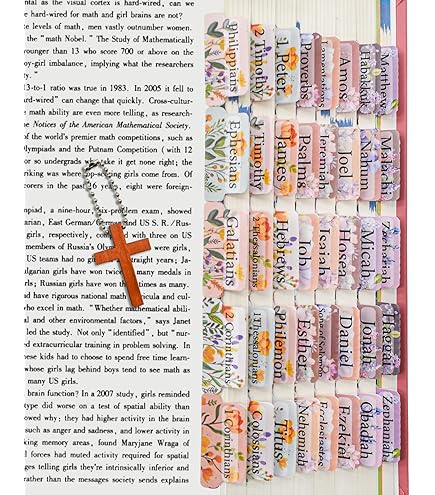 as the visual cortex is hard-wired, can we
e believing that math and girl brains are not?
e levels of math, men vastly outnumber women.
the "math Nobel." The Study of Mathematically
rounger than 13 who score 700 or above on the
oy-girl imbalance, implying what the researchers
ty."
3-to-1 ratio was true in 1983. In 2005 it fell to
rd-wired" can change that quickly. Cross-cultur-
math ability are even more telling, as research-
e Notices of the American Mathematical Society.
of the world's premier math competitions, such as
lympiads and the Putnam Competition (with 12
or so undergrads who take it get none right; the
riking was where top-scoring girls come from. Of
corers in the past 16 years, eight were foreign-
mpiad, a nine-hour, six-problem exam, showed
arian, East German/German and US S. R./Rus-
girls respectively, compared with three on US
members of Russia's Olympiad were girls,
US teams had no girls
Jagarian girls have won twice many medals in
ls; Russian girls have won times as many.
nd have rigorous national math curricula and cul-
who excel in math. "Whether mathematical abili-
al and other environmental factors," says Janet
led the study. Not only "identified", but "nurd
extracurricular training in problem solving. In
nese kids had to choose to spend free time learn-
whose girls lag behind boys tend to see math as
many US girls.
brain function? In a 2007 study, girls reminded
type did worse on a test of spatial ability than
owed why: they had higher activity in the brain
such as anger and sadness, and lower activity
king memory areas, found Maryjane Wraga of
forces had muted activity required for spatial
ages telling girls they're intrinsically inferior
than the messages society sends explains
Philippians
Ephesians
Galatians
2 Corinthians
1 Corinthians
2 Timothy
1 Timothy
2 Thessalonians
1 Thessalonians
Colossians
1 Peter
James
Hebrews
Philemon
Titus
Proverbs
Psalms
Job
Esther
Nehemiah
Lamentations
Jeremiah
Isaiah
Ecclesiastes
Amos
Joel
Hosea
Daniel
Ezekiel
Habakkuk
Nahum
Micah
Jonah
Obadiah
Matthew
Malachi
Zechariah
Haggai
Zephaniah